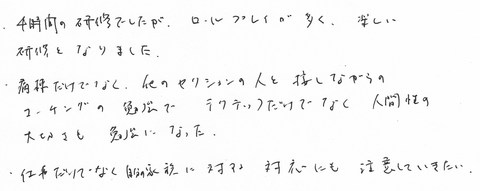 ・4時間の研修でしたが、ロールプレイが多く、楽しい
研修となりました。
・病棟だけでなく、他のセクションの人と接しながらの
コーチングの勉強で テクニックだけでなく 人間性の
大切さも 勉強になった。
・仕事だけでなく 自分の家族に対する 対応にも 注意していきたい。